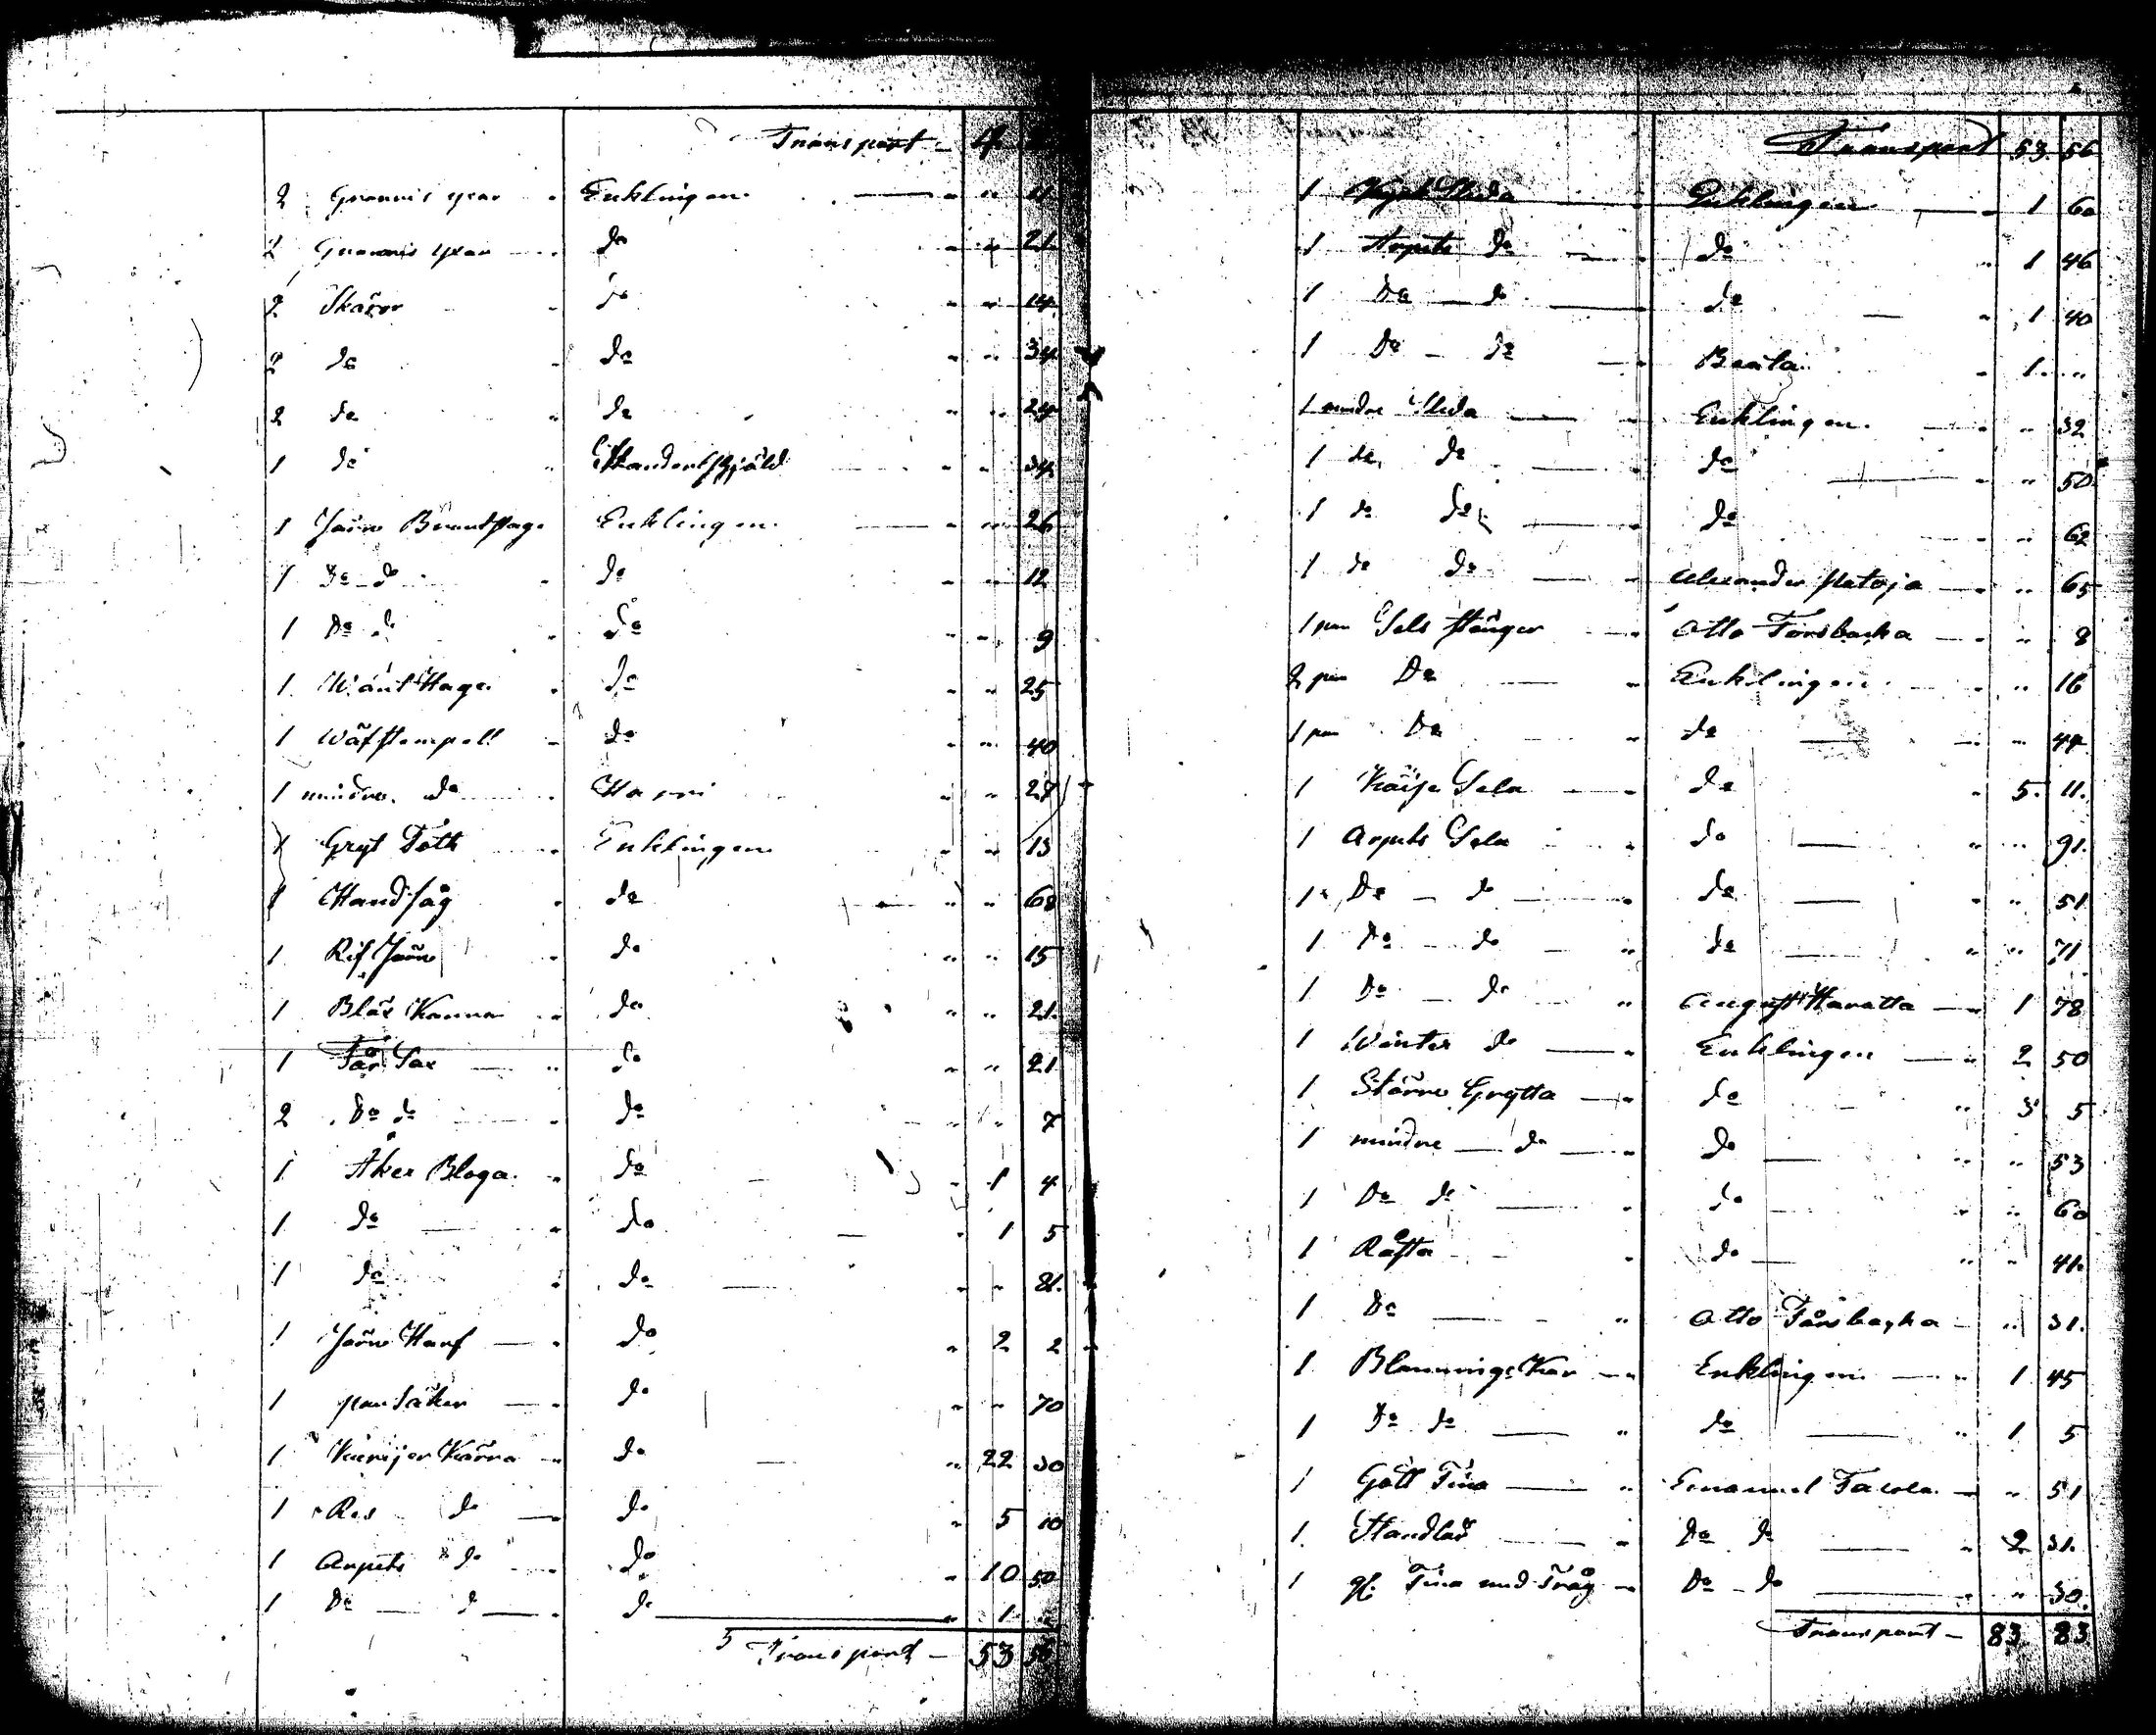 Transport - 4
2 Grannis yxar " Enklingen — " " 11
2 Grannis yxar " do " " 21
2 Skäror " do " " 14
2 do " do " " 34
2 do " do " " 24
1 do " " " 34
1 Järn Enklingen — " " 26
1 Do do " do " " 12
1 Do do " do " " 9
1 " do " " 25
1 Wäfstempell " do " " 40
1 mindre do " Harri " " 27
1 Gryt Foth " Enklingen " " 13
1 Handsåg " do " " 68
1 Rif Järn " do " " 15
1 Blär Kanna " do " " 21
1 Får Sax — " do " " 21
2 Do do " do " " 7
1 Åker Bloga " do " 1 4
1 do — " do — " 1 5
1 do " do — " " 81
1 Järn Harf — " do " 2 2
1 — " do " " 70
1 Kärra " do — " 22 30
1 Res do — do " 5 10
1 Arpets do do " 10 50
1 Do — do — " do — " 1 "
Transport - 53 56
Transport 53 56
1 Släda " Enklingen — " 1 60
1 Arpets do — " do " 1 46
1 Do — do — do — " 1 40
1 Do — do — " " 1 "
1 mindre Släda — " Enklingen — " " 32
1 do do — " do — " " 50
1 do do — " do " " 62
1 do do — " Alexander — " " 65
1 par Sels stänger — " Otto Forsbacka — " " 8
2 par Do — " Enklingen " " 16
1 par Do " do — " " 44
1 Sela — " do " 5 11
1 Arpets Sela " do — " " 91
1 Do — do — " do — " " 51
1 Do — do — " do — " " 71
1 Do — do " August Haratta — " 1 78
1 Winter do — " Enklingen — " 2 50
1 Större Grytta — " do " 3 5
1 mindre — do — " do — " " 53
1 Do do — " do " " 60
1 Råsta " do — " " 41
1 Do — " Otto Forsbacka — " " 31
1 Blannings Kar — " Enklingen — " 1 45
1 Do do — " do — " 1 5
1 Gött Tina — " Emanuel — " " 51
1 — " Do do — " 2 31
1 gl. Tina med Tråg — " Do - do — " " 30
Transport - 83 83